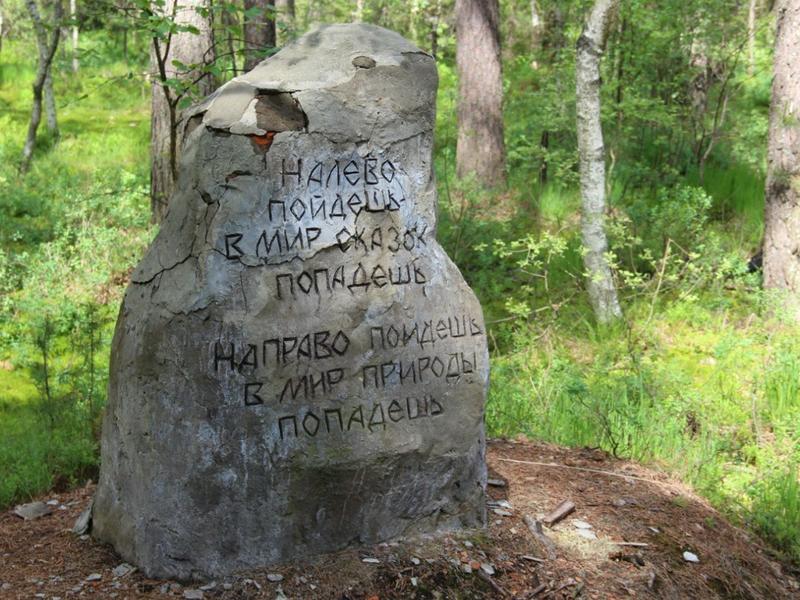 НАЛЕВО
ПОЙДЕШЬ-
В МИР СКАЗОК
ПОПАДЕШЬ
НАПРАВО ПОЙДЕШЬ
В МИР ПРИРОДЫ
ПОПАДЕШЬ